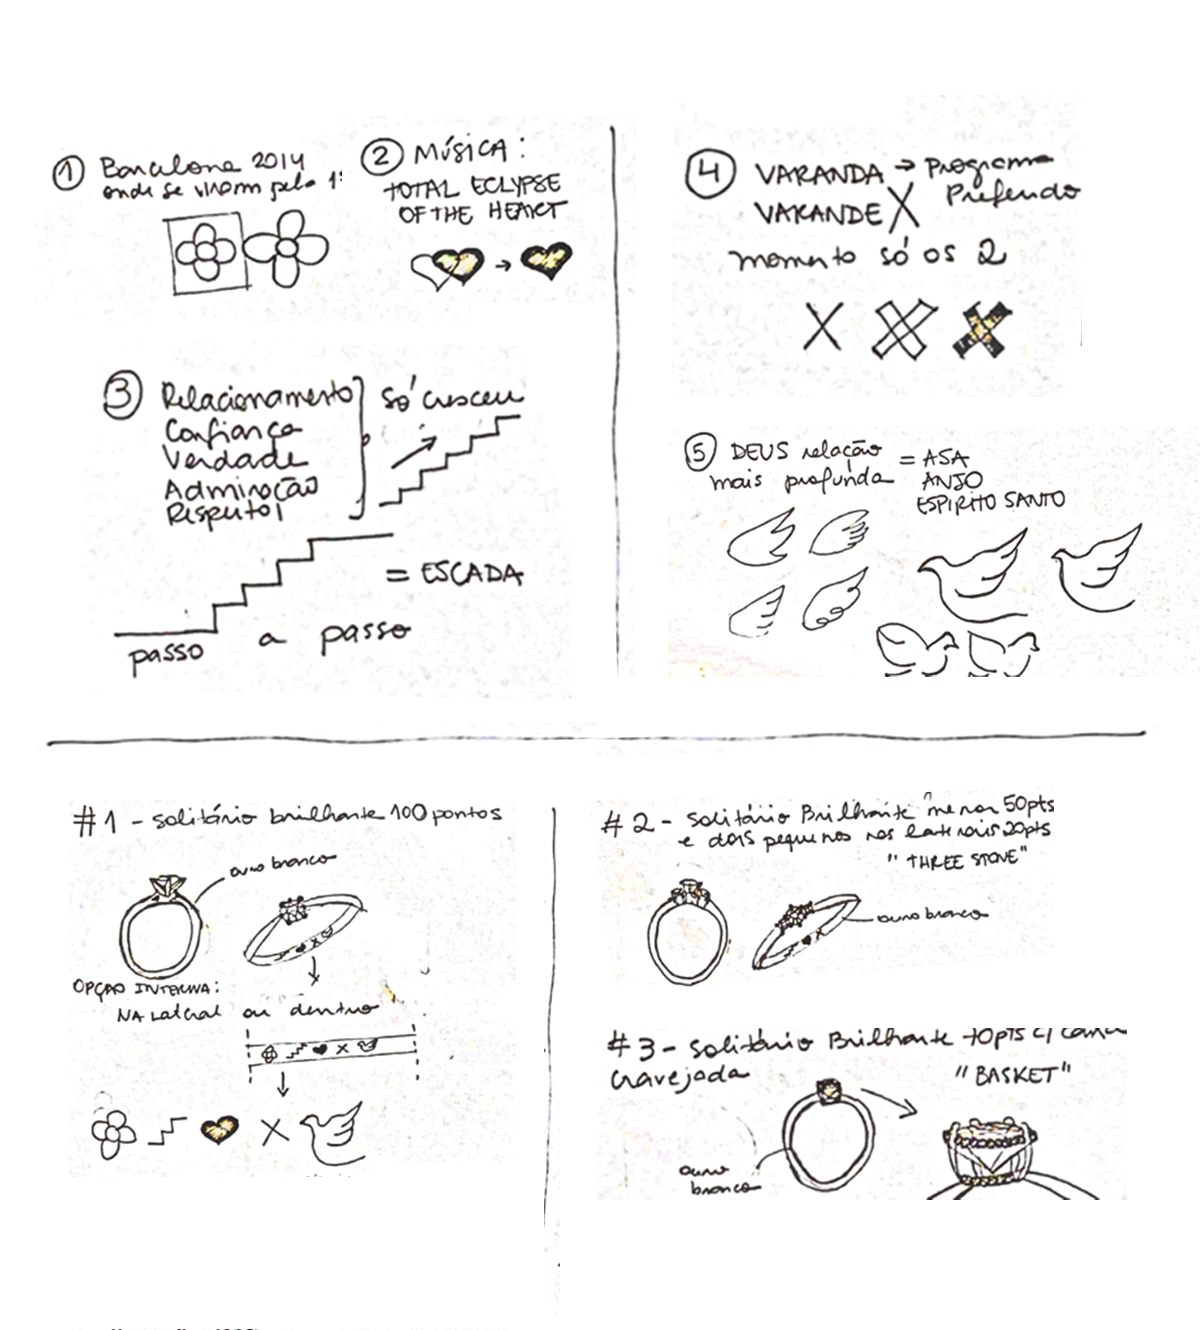 ① Barcelona 2014
onde se viram pela 1ª
② MÚSICA:
TOTAL ECLYPSE
OF THE HEART
③ Relacionamento
Confiança
Verdade
Admiração
Respeito!
Só cresceu
= ESCADA
passo a passo
④ VARANDA → Programa
Preferido
VARANDE X
momento só os 2
⑤ DEUS relação
mais profunda
= ASA
ANJO
ESPIRITO SANTO
#1 - Solitário brilhante 100 pontos
ouro branco
OPÇÃO INTERNA:
NA Lateral ou dentro
#2 - Solitário Brilhante menor 50pts
e dois pequenos nas laterais 20pts
"THREE STONE"
ouro branco
#3 - Solitário Brilhante 70pts c/
Cravejada
"BASKET"
ouro
branco